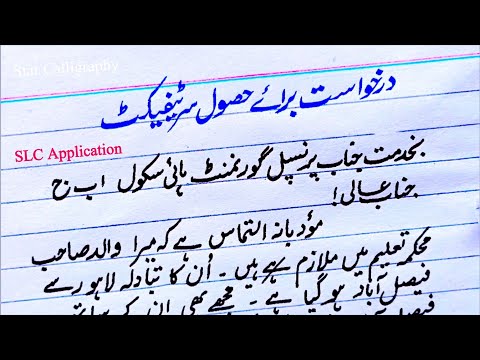 Star Calligraphy
درخواست برائے حصول سرٹیفیکٹ
SLC Application
بخدمت جناب پرنسپل گورنمنٹ ہائی سکول ا ب ج
جناب عالی!
مؤدبانہ التماس ہے کہ میرا والد صاحب
محکمہ تعلیم میں ملازم ہے ہیں۔ اُن کا تبادلہ لاہور سے
فیصل آباد ہو گیا ہے۔ مجھے بھی ان کے ساتھ
فیصل آباد